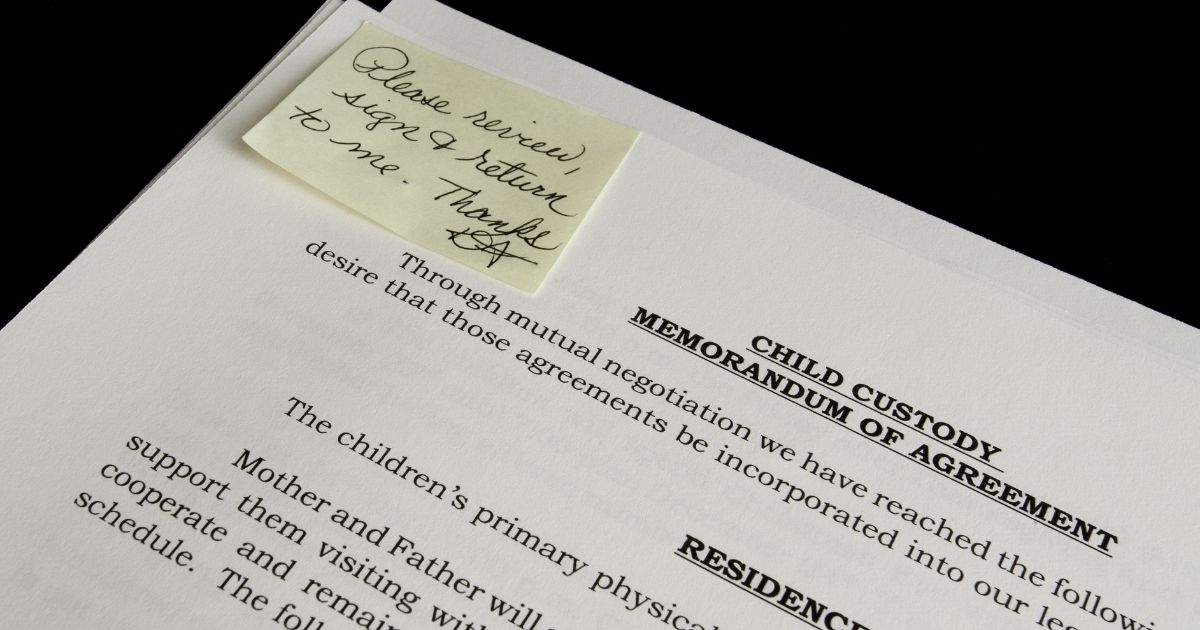 Please review,
sign & return
to me. Thanks
CHILD CUSTODY
MEMORANDUM OF AGREEMENT
Through mutual negotiation we have reached the
desire that those agreements be incorporated into our
RESIDENCE
The children's primary physical
Mother and Father will
support them visiting
cooperate and remain
schedule. The